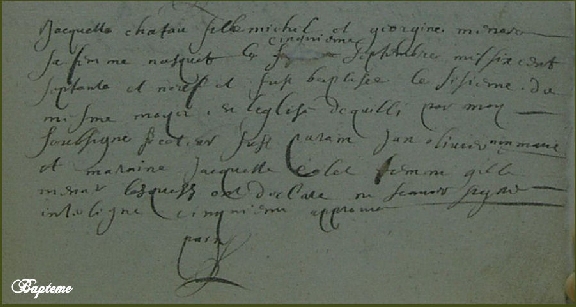 Jacquette chatau fille michel et georgine menar
sa femme nasquit le cinquieme septembre mil six cent
septante et neef et fust baptisee le sesieme du
misme moys en leglise de quilli par moy
soubsigne fust parain Jan olivier
et maraine Jacquette femme gille
menar lesquels ont declare ne scavoir signe
interligne cinquieme approuve
Bapteme